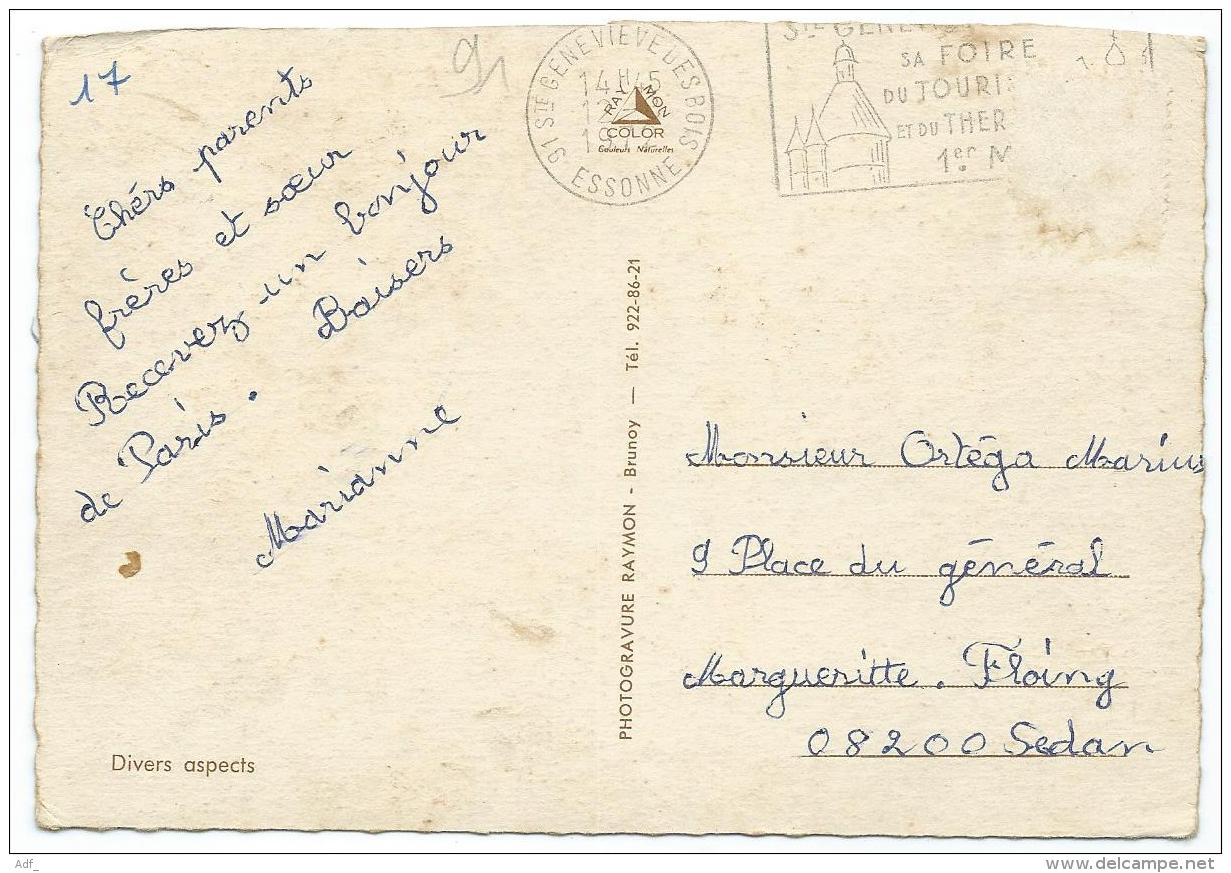 17
91
Chérs parents
frères et sœur
Recevez un bonjour
de Paris. Baisers
Marianne
Divers aspects
91 STE GENEVIEVE DES BOIS
14H45
ESSONNE
RAYMON
COLOR
Couleurs Naturelles
SA FOIRE
DU TOURI
ET DU THER
1er M
PHOTOGRAVURE RAYMON - Brunoy — Tél. 922-86-21
Monsieur Ortéga Marius
9 Place du général
Margueritte. Floing
08200 Sedan
Adf_
©delcampe.net